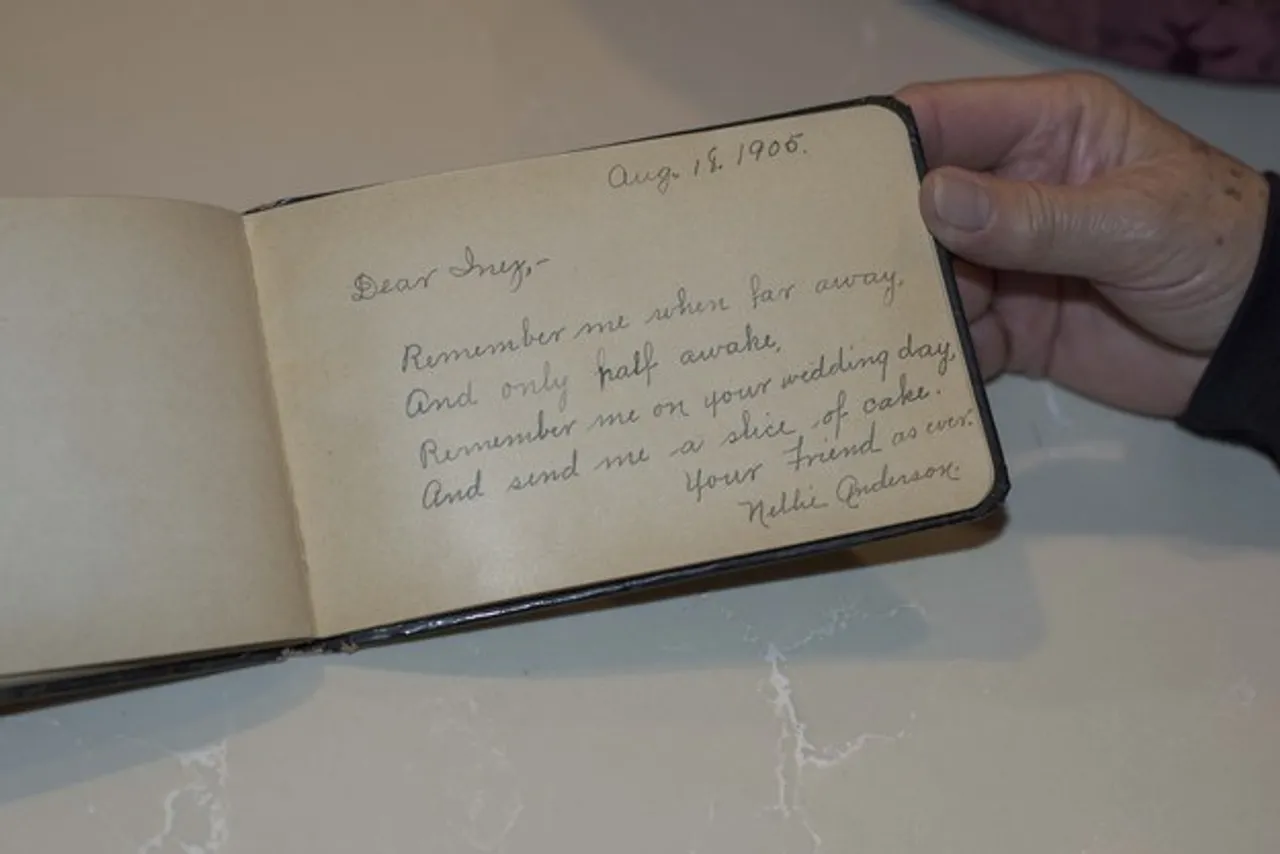 Aug. 18. 1905.
Dear Inez,-
Remember me when far away,
And only half awake,
Remember me on your wedding day,
And send me a slice of cake.
Your Friend as ever.
Nellie Anderson.